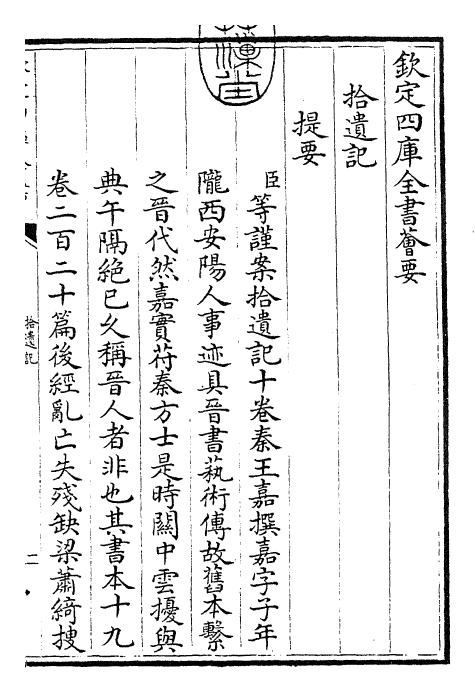 欽定四庫全書薈要
拾遺記
提要
臣等謹案拾遺記十卷秦王嘉撰嘉字子年
隴西安陽人事迹具晉書蓺術傳故舊本繫
之晉代然嘉實苻秦方士是時關中雲擾與
典午隔絶已久稱晉人者非也其書本十九
卷二百二十篇後經亂亡失殘缺梁蕭綺搜
拾遺記
二